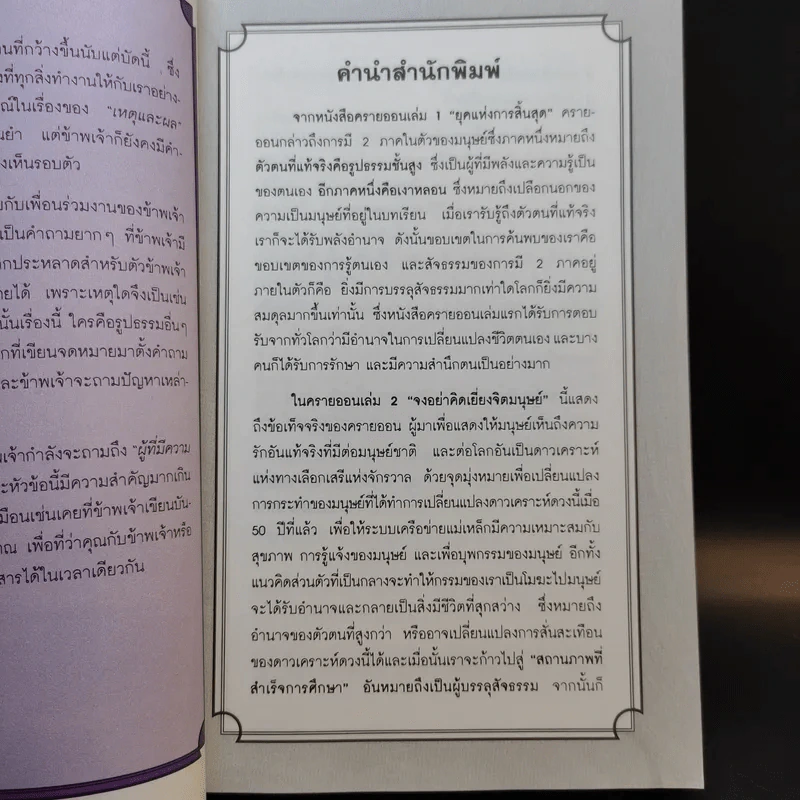 นที่กว้างขึ้นนับแต่บัดนี้ ซึ่ง
งที่ทุกสิ่งทำงานให้กับเราอย่าง-
ณ์ในเรื่องของ "เหตุและผล"
นยำ แต่ข้าพเจ้าก็ยังคงมีคำ-
งเห็นรอบตัว
ยกับเพื่อนร่วมงานของข้าพเจ้า
เป็นคำถามยากๆ ที่ข้าพเจ้ามี
กประหลาดสำหรับตัวข้าพเจ้า
ายได้ เพราะเหตุใดจึงเป็นเช่น
นั้นเรื่องนี้ ใครคือรูปธรรมอื่นๆ
กที่เขียนจดหมายมาตั้งคำถาม
ละข้าพเจ้าจะถามปัญหาเหล่า-
พเจ้ากำลังจะถามถึง "ผู้ที่มีความ
ะหัวข้อนี้มีความสำคัญมากเกิน
มือนเช่นเคยที่ข้าพเจ้าเขียนบัน-
าณ เพื่อที่ว่าคุณกับข้าพเจ้าหรือ
สารได้ในเวลาเดียวกัน
คำนำสำนักพิมพ์
จากหนังสือครายออนเล่ม 1 "ยุคแห่งการสิ้นสุด" คราย-
ออนกล่าวถึงการมี 2 ภาคในตัวของมนุษย์ซึ่งภาคหนึ่งหมายถึง
ตัวตนที่แท้จริงคือรูปธรรมชั้นสูง ซึ่งเป็นผู้ที่มีพลังและความรู้เป็น
ของตนเอง อีกภาคหนึ่งคือเงาหลอน ซึ่งหมายถึงเปลือกนอกของ
ความเป็นมนุษย์ที่อยู่ในบทเรียน เมื่อเรารับรู้ถึงตัวตนที่แท้จริง
เราก็จะได้รับพลังอำนาจ ดังนั้นขอบเขตในการค้นพบของเราคือ
ขอบเขตของการรู้ตนเอง และสัจธรรมของการมี 2 ภาคอยู่
ภายในตัวก็คือ ยิ่งมีการบรรลุสัจธรรมมากเท่าใดโลกก็ยิ่งมีความ
สมดุลมากขึ้นเท่านั้น ซึ่งหนังสือครายออนเล่มแรกได้รับการตอบ
รับจากทั่วโลกว่ามีอำนาจในการเปลี่ยนแปลงชีวิตตนเอง และบาง
คนก็ได้รับการรักษา และมีความสำนึกตนเป็นอย่างมาก
ในครายออนเล่ม 2 "จงอย่าคิดเยี่ยงจิตมนุษย์" นี้แสดง
ถึงข้อเท็จจริงของครายออน ผู้มาเพื่อแสดงให้มนุษย์เห็นถึงความ
รักอันแท้จริงที่มีต่อมนุษย์ชาติ และต่อโลกอันเป็นดาวเคราะห์
แห่งทางเลือกเสรีแห่งจักรวาล ด้วยจุดมุ่งหมายเพื่อเปลี่ยนแปลง
การกระทำของมนุษย์ที่ได้ทำการเปลี่ยนแปลงดาวเคราะห์ดวงนี้เมื่อ
50 ปีที่แล้ว เพื่อให้ระบบเครือข่ายแม่เหล็กมีความเหมาะสมกับ
สุขภาพ การรู้แจ้งของมนุษย์ และเพื่อบุพกรรมของมนุษย์ อีกทั้ง
แนวคิดส่วนตัวที่เป็นกลางจะทำให้กรรมของเราเป็นโมฆะไปมนุษย์
จะได้รับอำนาจและกลายเป็นสิ่งมีชีวิตที่สุกสว่าง ซึ่งหมายถึง
อำนาจของตัวตนที่สูงกว่า หรืออาจเปลี่ยนแปลงการสั่นสะเทือน
ของดาวเคราะห์ดวงนี้ได้และเมื่อนั้นเราจะก้าวไปสู่ "สถานภาพที่
สำเร็จการศึกษา" อันหมายถึงเป็นผู้บรรลุสัจธรรม จากนั้นก็